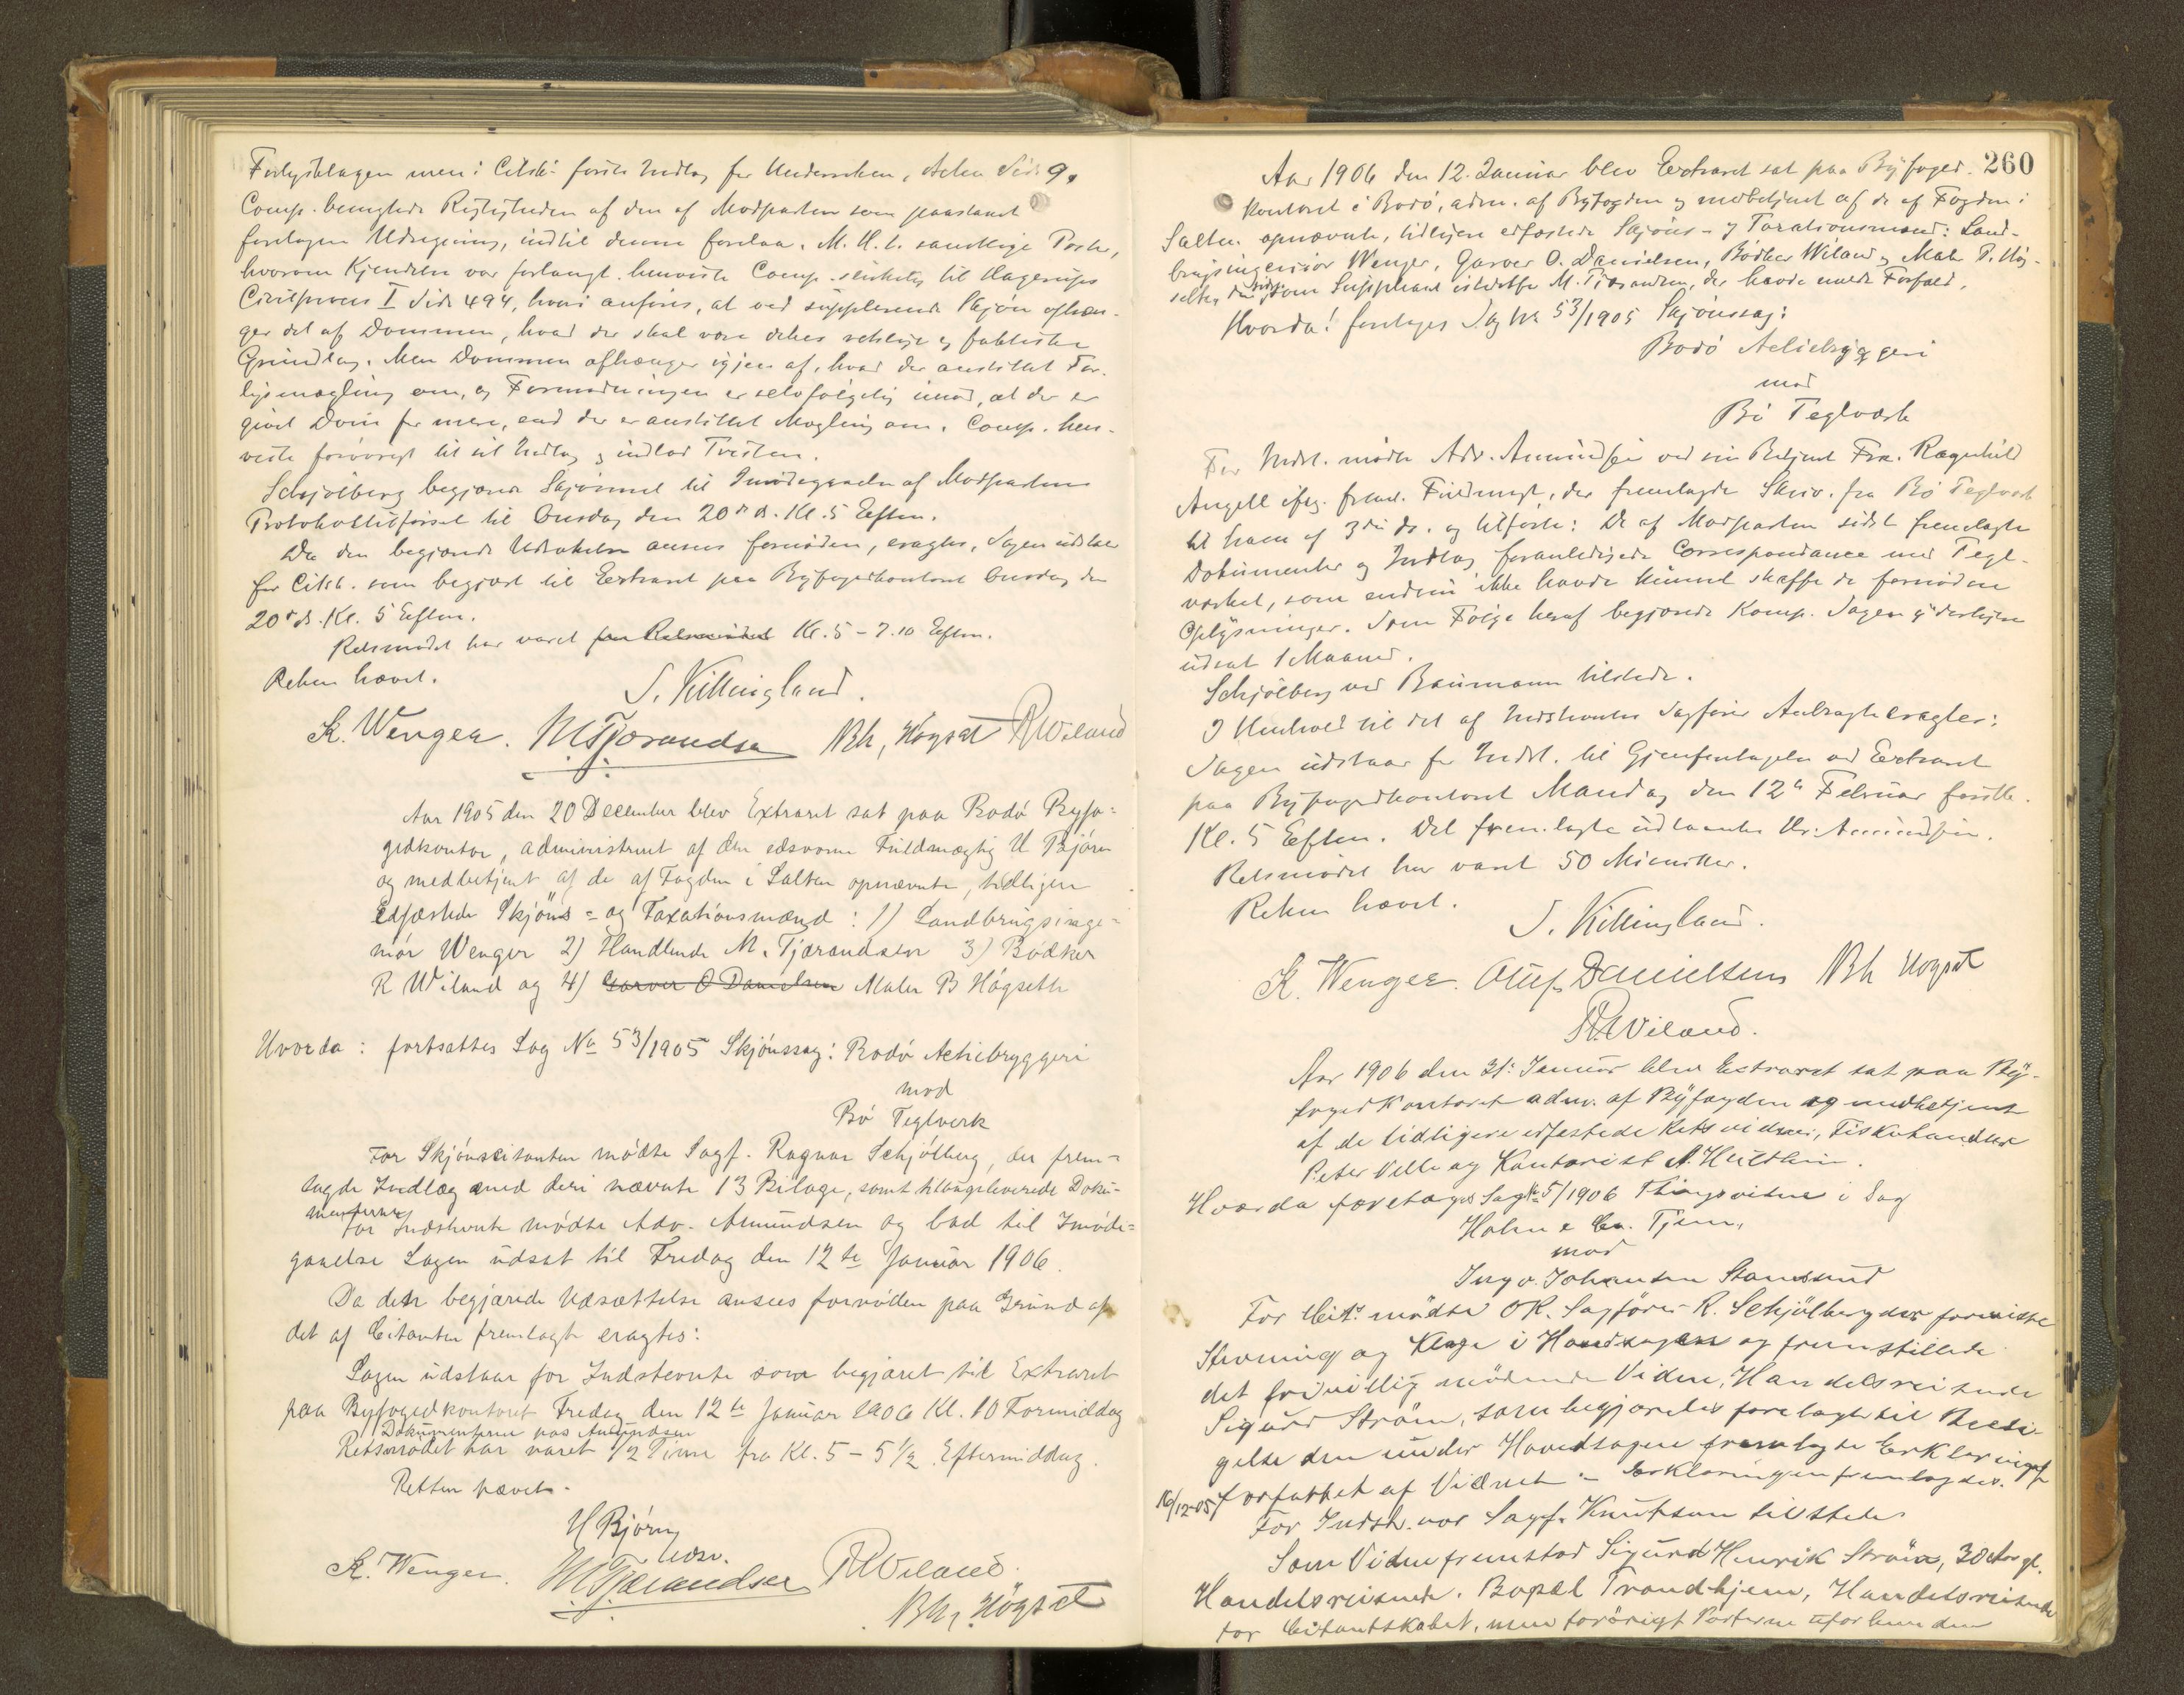 Forligsklagen men i Citsk. første Indlæg for Underretten, Acten Side 9.
Comp. benegtede Rigtigheden af den af Modparten som paastaaet
foretagen Udregning, indtil denne forelaa. M. H. t. samtlige Poster,
hvorom Kjendelse var forlangt henviste Comp. til Hagerups
Civilproces I Side 494, hvori anføres, at ved supplerende Skjøn afhæn-
ger det af Dommen, hvad der skal være dettes retslige og faktiske
Grundlag. Men Dommen afhænger igjen af, hvad der anstillet For-
ligsmægling om, og Formodningen er selvfølgelig imod, at der er
givet Dom for mere, end der er anstillet Mægling om. Comp. hen-
viste forøvrigt til sit Indlæg og indlod Tvisten.
Schjølberg begjærede Skjønnet til Imødegaaelse af Modpartens
Protokoltilførsel til Onsdag den 20de ds. Kl. 5 Eftm.
Da den begjærede Udsættelse ansees fornøden, eragtes, Sagen udstaar
for Citsk. som begjært til Extraret paa Byfogedkontoret Onsdag den
20de ds. Kl. 5 Eftm.
Retsmødet har varet fra Retsmødet Kl. 5 - 7.10 Eftm.
Retten hævet.
S. Killingland.
K. Wenger. M Tjærandsen Bh, Høgset R Wiland
Aar 1905 den 20 December blev Extraret sat paa Bodø Byfo-
gedkontor, administreret af den edsvorne Fuldmægtig U Bjørn
og medbetjent af de af Fogden i Salten opnævnte, tidligere
Edfæstede Skjøns- og Taxationsmænd: 1) Landbrugsinge-
niør Wenger 2) Handlende M. Tjærandsen 3) Bødker
R Wiland og 4) Garver O Danielsen Maler B Høgseth
Hvorda: fortsattes Sag No 53/1905 Skjønssag: Bodø Actiebryggeri
mod
Bø Teglverk
For Skjønscitanten mødte Sagf. Ragnar Schjølberg, der frem-
lagde Indlæg med deri nævnte 13 Bilage, samt tilbageleverede Doku-
menterne
For Indstevnte mødte Adv. Amundsen og bad til Imøde-
gaaelse Sagen udsat til Fredag den 12te Januar 1906.
Da den begjærede Udsættelse ansees fornøden paa Grund af
det af Citanten fremlagte eragtes:
Sagen udstaar for Indstevnte som begjæret til Extraret
paa Byfogedkontoret Fredag den 12te Januar 1906 Kl. 10 Formiddag
Dokumenterne hos Amundsen
Retsmødet har varet 1/2 Time fra Kl. 5 - 5 1/2 Eftermiddag.
Retten hævet.
U Bjørn
edsv.
K. Wenger. M Tjærandsen R Wiland.
Bh, Høgset
260
Aar 1906 den 12. Januar blev Extraret sat paa Byfoged-
kontoret i Bodø, adm. af Byfogden og medbetjent af de af Fogden i
Salten opnævnte, tidligere edfæstede Skjøns- og Taxationsmænd: Land-
brugsingeniør Wenger, Garver O. Danielsen, Bødker Wiland og Maler B. Høg-
seth, som Suppleant istedetfor M. Tjærandsen, der havde meldt Forfald.
Hvorda: foretoges Sag No 53/1905 Skjønssag:
Bodø Actiebryggeri
mod
Bø Teglværk
For Indst. mødte Adv. Amundsen ved sin Betjent Frk. Ragnhild
Angell iflg. freml. Fuldmagt, der fremlagde Skriv. fra Bø Teglværk
til ham af 3die ds. og tilførte: De af Modparten sidst fremlagte
Dokumenter og Indlæg foranledigede Correspondance med Tegl-
værket, som endnu ikke havde kunnet skaffe de fornødne
Oplysninger. Som Følge heraf begjærede Komp. Sagen yderligere
udsat 1 Maaned.
Schjølberg ved Baumann tilstede.
I Henhold til det af Indstevntes Sagfører Anbragte eragtes:
Sagen udstaar for Indst. til Gjenforetagelse ved Extraret
paa Byfogedkontoret Mandag den 12te Februar førstk.
Kl. 5 Eftm. Det fremlagte udlaantes Hr. Amundsen.
Retsmødet har varet 50 Minutter.
Retten hævet.
S. Killingland.
K. Wenger. Oluf Danielsen Bh Høgset
R Wiland.
Aar 1906 den 31. Januar blev Extraret sat paa By-
fogedkontoret adm. af Byfogden og medbetjent
af de tidligere edfæstede Retsvidner, Fiskehandler
Peter Velle og Kontorist A. Hulthin.
Hvorda foretoges Sag No 5/1906 Thingsvidne i Sag
Holm & Co. Tjem,
mod
Ingv. Johansen Stamsund
For Citt. mødte OR. Sagfører R. Schjølberg der foreviste
Stevning og Klage i Hovedsagen og fremstillede
det frivillig mødende Vidne, Handelsreisende
Sigurd Strøm, som begjæredes forelagt til Beedi-
gelse den under Hovedsagen fremlagte Erklæring af
16/12-05 forfattet af Vidnet - Erklæringen fremlagdes.
For Indst. var Sagf. Knutson tilstede
Som Vidne fremstod Sigurd Henrik Strøm, 30 Aar gl.
Handelsreisende. Bopæl Trondhjem, Handelsreisende
for Citantskabet, men forøvrigt Parterne uforbunden